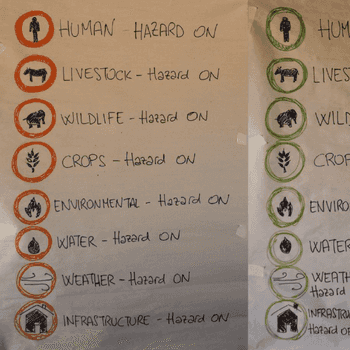 HUMAN - HAZARD ON
LIVESTOCK - Hazard ON
WILDLIFE - Hazard ON
CROPS - Hazard ON
ENVIRONMENTAL - Hazard ON
WATER - Hazard ON
WEATHER - Hazard ON
INFRASTRUCTURE - Hazard ON
HUM
LIVES
WILD
CROP
ENVIRO
WATER
WEATH
Hazard
INFRASTRU
Hazard OF